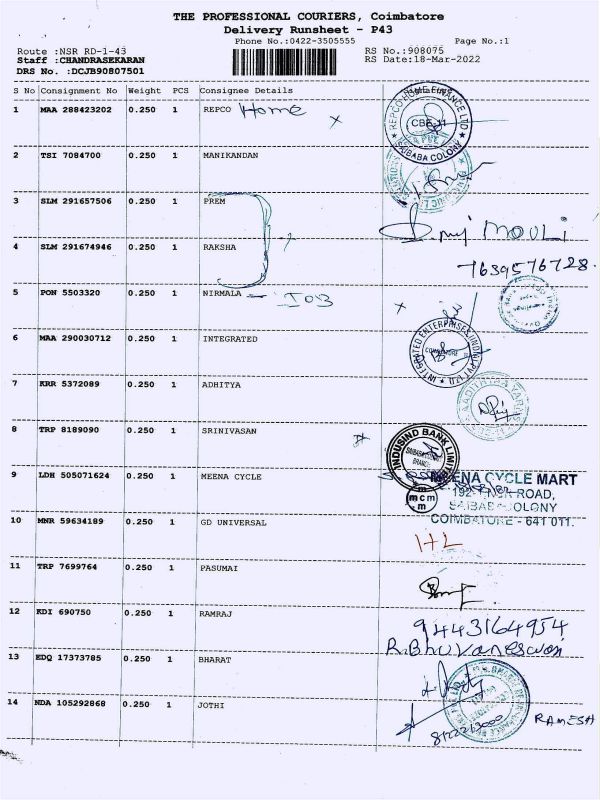 THE PROFESSIONAL COURIERS, Coimbatore
Delivery Runsheet - P43
Phone No.:0422-3505555 Page No.:1
Route :NSR RD-1-43 RS No.:908075
Staff :CHANDRASEKARAN RS Date:18-Mar-2022
DRS No. :DCJB90807501
S No Consignment No Weight PCS Consignee Details
1 MAA 288423202 0.250 1 REPCO Home
REPCO HOME FINANCE LTD
CBE-11
SAIBABA COLONY
2 TSI 7084700 0.250 1 MANIKANDAN
3 SLM 291657506 0.250 1 PREM
MOULI
4 SLM 291674946 0.250 1 RAKSHA
7639576728
5 PON 5503320 0.250 1 NIRMALA - IOB
6 MAA 290030712 0.250 1 INTEGRATED
INTEGRATED ENTERPRISES (INDIA) PVT LTD
7 KRR 5372089 0.250 1 ADHITYA
8 TRP 8189090 0.250 1 SRINIVASAN
INDUSIND BANK LIMITED
9 LDH 505071624 0.250 1 MEENA CYCLE
MEENA CYCLE MART
mcm
ROAD,
SAIBABA COLONY
COIMBATORE - 641 011.
10 MNR 59634189 0.250 1 GD UNIVERSAL
11 TRP 7699764 0.250 1 PASUMAI
12 KDI 690750 0.250 1 RAMRAJ
9443164954
R.Bhuvaneswari
13 EDQ 17373785 0.250 1 BHARAT
14 NDA 105292868 0.250 1 JOTHI
RAMESH